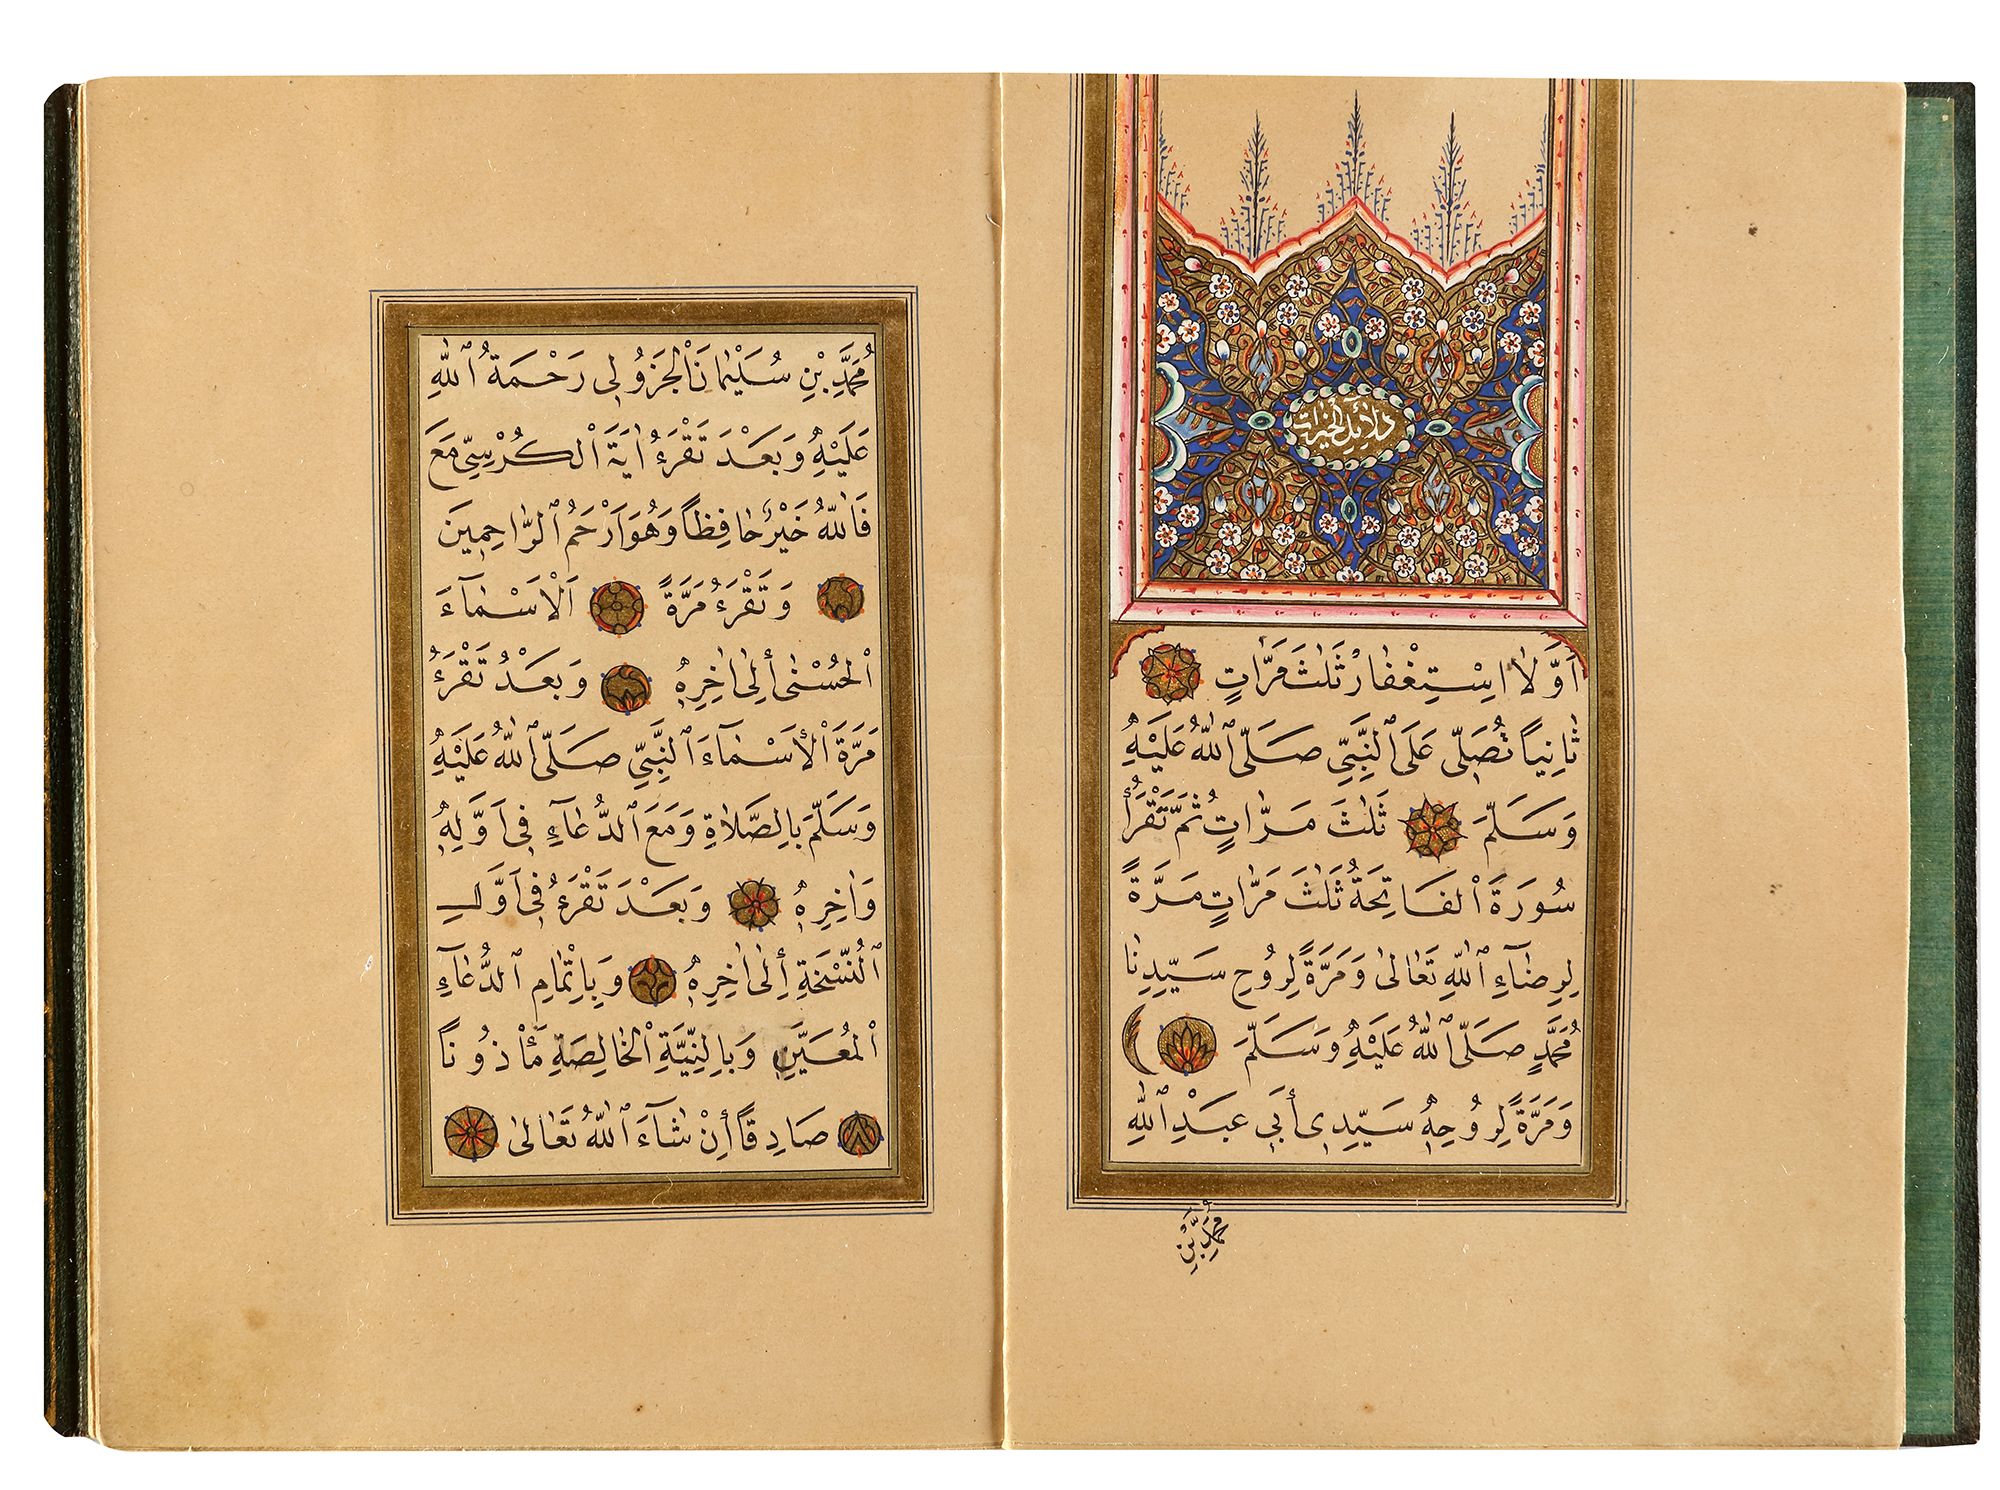 دَلَائِلُ الْخَيْرَاتِ
اَوَّلاً اِسْتِغْفَارْ ثَلٰثَ مَرَّاتٍ
ثَانِياً تُصَلِّى عَلَى النَّبِيِّ صَلَّى اللّٰهُ عَلَيْهِ
وَسَلَّمَ ثَلٰثَ مَرَّاتٍ ثُمَّ تَقْرَأُ
سُورَةَ الْفَاتِحَةُ ثَلٰثَ مَرَّاتٍ مَرَّةً
لِرِضَاءِ اللّٰهِ تَعَالٰى وَمَرَّةً لِرُوحِ سَيِّدِنَا
مُحَمَّدٍ صَلَّى اللّٰهُ عَلَيْهِ وَسَلَّمَ
وَمَرَّةً لِرُوحِهِ سَيِّدِى أَبِى عَبْدِ اللّٰهِ
مُحَمَّدِ بْنِ
مُحَمَّدِ بْنِ سُلَيْمَانَ الْجَزُولِى رَحْمَةُ اللّٰهِ
عَلَيْهِ وَبَعْدَ تَقْرَءُ اٰيَةَ الْكُرْسِىِّ مَعَ
فَاللّٰهُ خَيْرٌ حَافِظاً وَهُوَ اَرْحَمُ الرَّاحِمِينَ
وَتَقْرَءُ مَرَّةً اَلْاَسْمَآءَ
الْحُسْنٰى أِلٰى اٰخِرِهِ وَبَعْدُ تَقْرَءُ
مَرَّةَ الْأَسْمَآءَ النَّبِىِّ صَلَّى اللّٰهُ عَلَيْهِ
وَسَلَّمَ بِالصَّلَاةِ وَمَعَ الدُّعَآءِ فِى اَوَّلِهِ
وَاٰخِرِهِ وَبَعْدَ تَقْرَءُ فِى اَوَّلِ
النُّسْخَةِ أِلٰى اٰخِرِهِ وَبِاِتْمَامِ الدُّعَآءِ
الْمُعَيَّنِ وَبِالنِّيَّةِ الْخَالِصَةِ مَأْذُوناً
صَادِقاً أِنْ شَآءَ اللّٰهُ تَعَالٰى